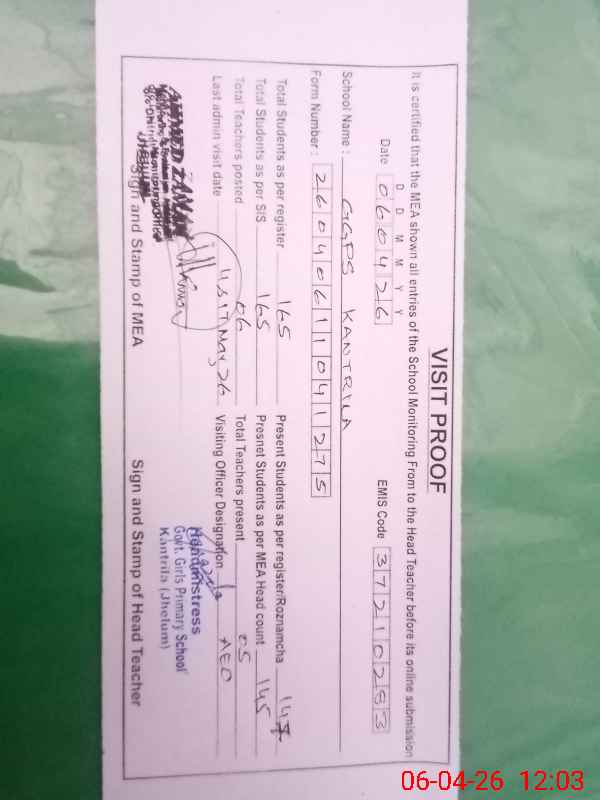 VISIT PROOF
It is certified that the MEA shown all entries of the School Monitoring From to the Head Teacher before its online submission
D D M M Y Y
Date 060426 EMIS Code 37210283
School Name : GGPS KANTRILA
Form Number : 26040611041275
Total Students as per register 165 Present Students as per register/Roznamcha 147
Total Students as per SIS 165 Presnet Students as per MEA Head count 145
Total Teachers posted 06 Total Teachers present 05
Last admin visit date Visiting Officer Designation AEO
AHMED ZAMAN
JHELUM
Headmistress
Govt. Girls Primary School
Kantrila (Jhelum)
Sign and Stamp of MEA Sign and Stamp of Head Teacher
06-04-26 12:03